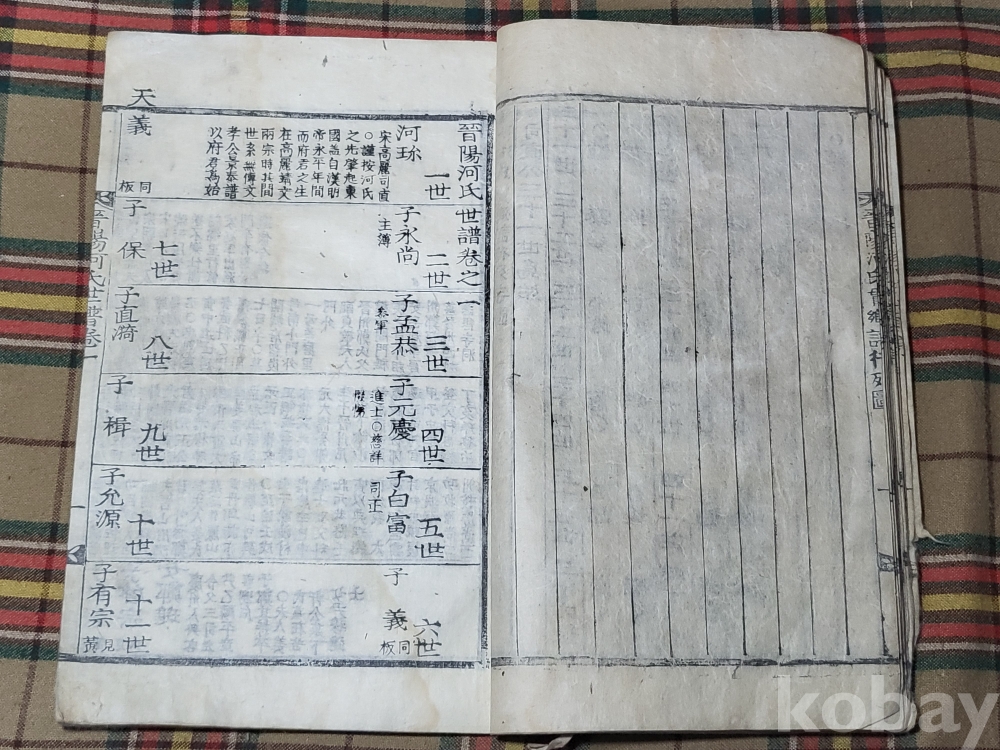 晉陽河氏世譜卷之一
一世
河珎
宋高麗司直
○謹按河氏
之先肇起東
國盖自漢明
帝永平年間
而府君之生
在高麗靖文
兩宗時其間
世系無傳文
孝公景泰譜
以府君爲始
二世
子永尚
主簿
三世
子孟恭
叅軍
四世
子元慶
進士○慈詳
愷悌
五世
子白富
司正
六世
子義
同板
天
義
同板
七世
子保
八世
子直漪
九世
子楫
十世
子允源
十一世
子有宗
見黃
晉陽河氏世譜卷一
一
kobay